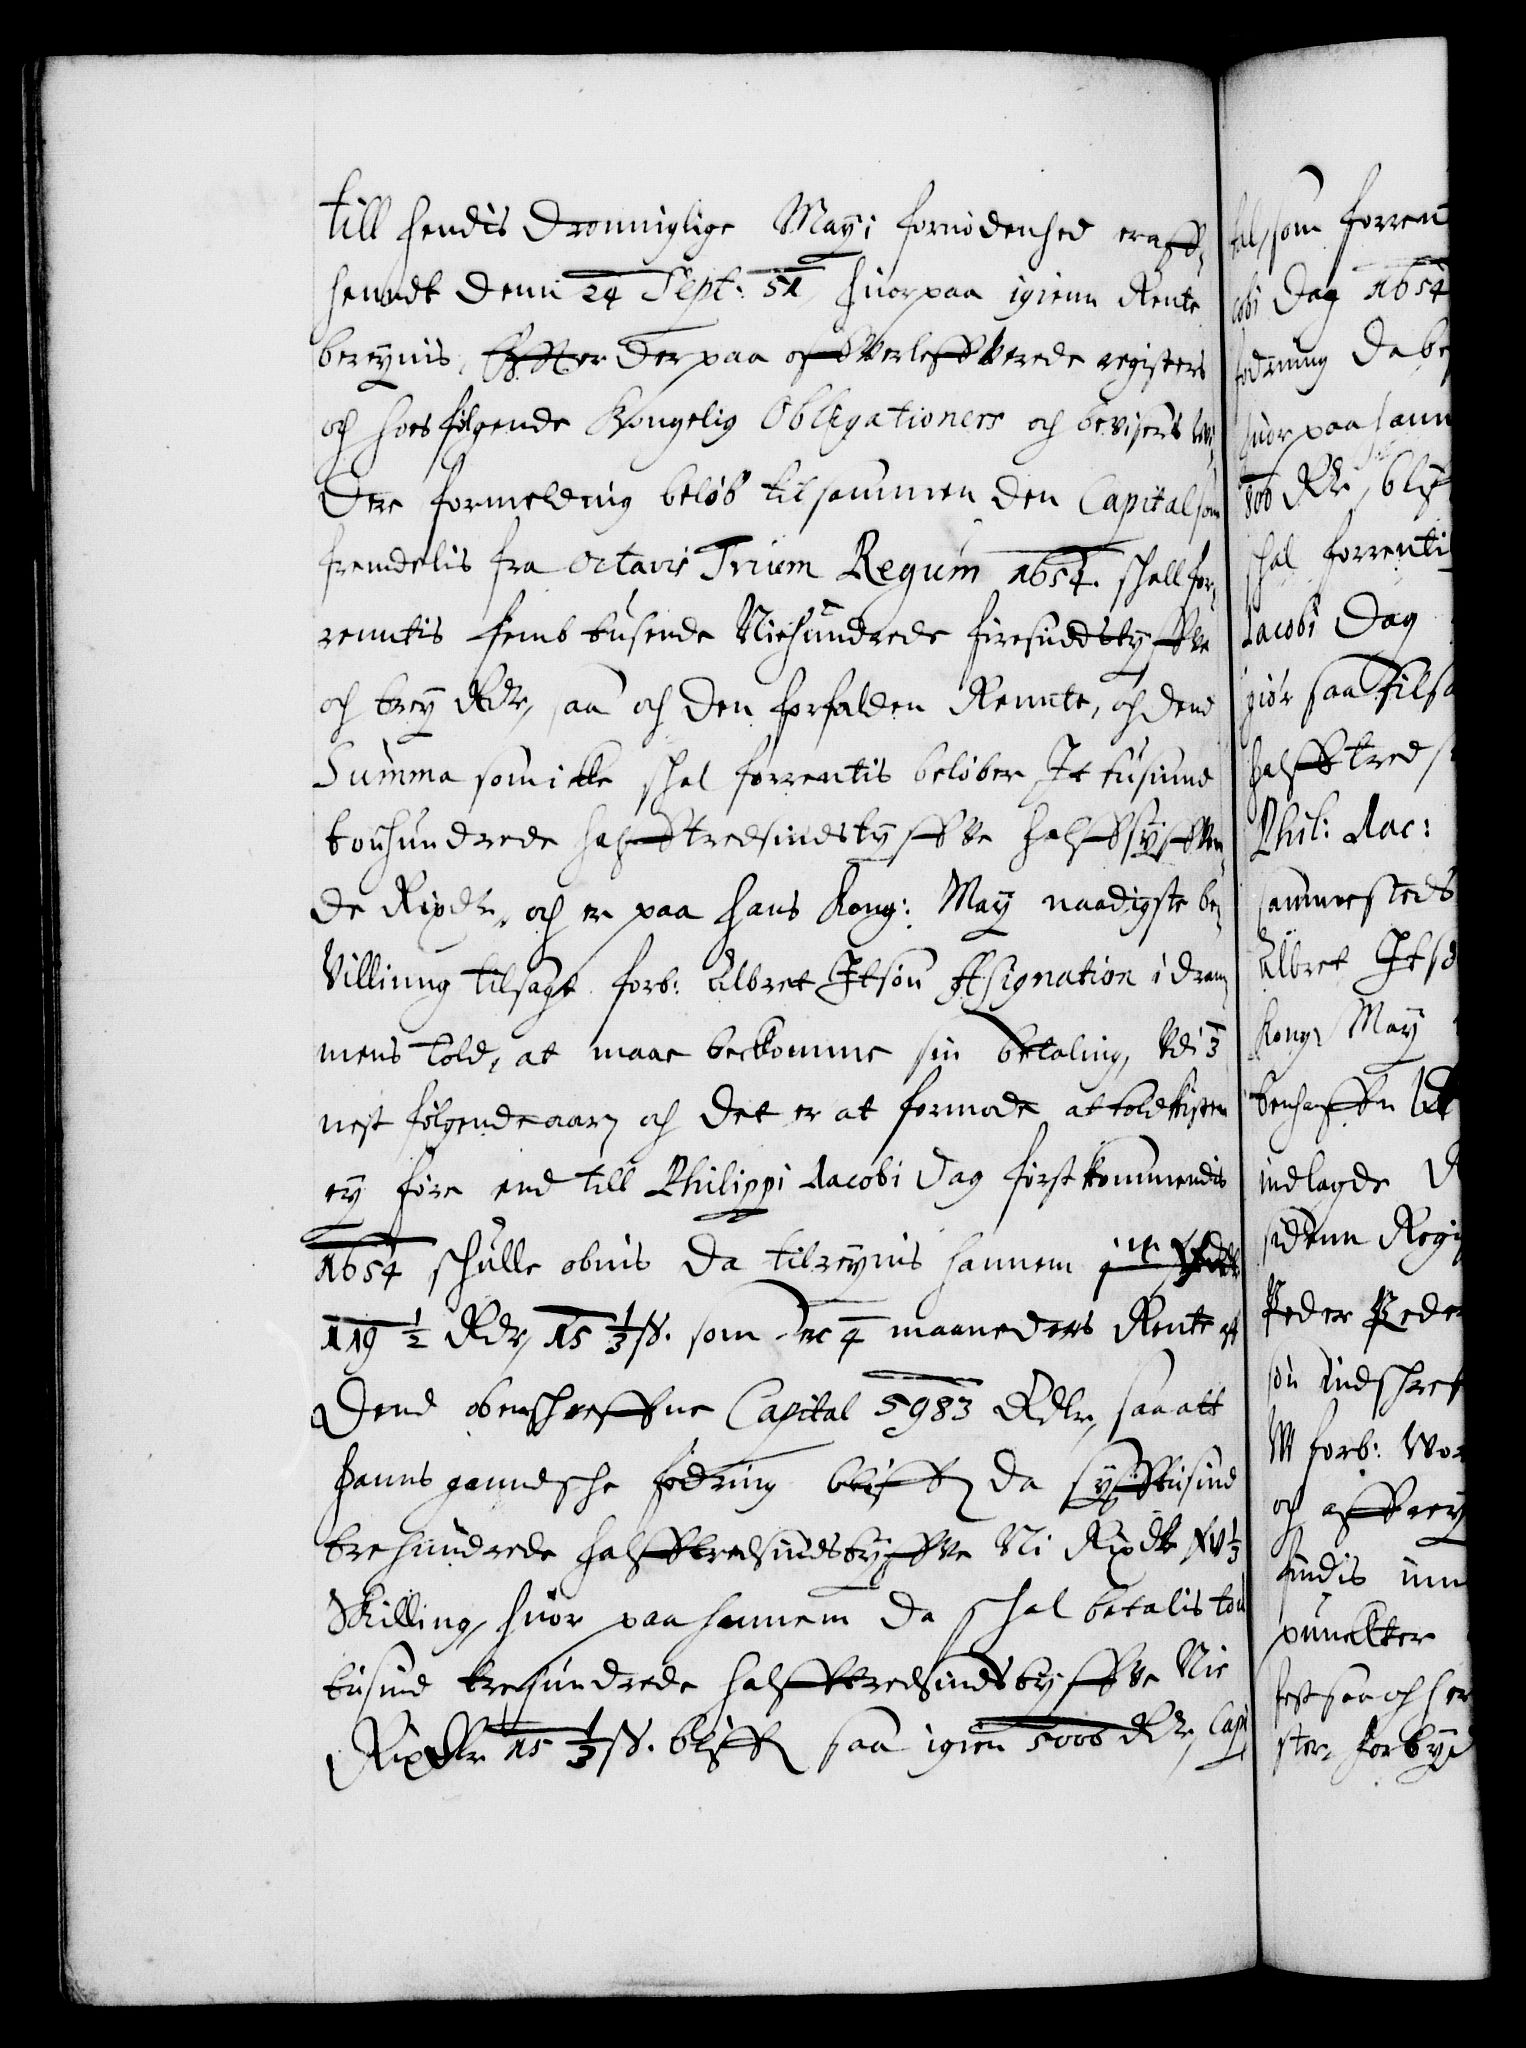 till hendis Dronniglige May: fornødenhed er aff¬
hendt denn 24 Sept: 51, huorpaa igienn Rente
beregnis, Effter derpaa offverleffverede registers
och hoes følgende Kongelig Obligationers och bevisers
dere formelding beløb tilsammen den Capital som
fremdelis fra octavis Trium Regum 1654. shall for¬
renntis femb tusende Niehundrede firesindstyffve
och trey Rdr, saa och den forfalden Rennte, och dend
Summa som ikke shal forrentis beløber It tusinnd
touhundrede halfftredsindstyffve halffsyffven¬
de Rixdr, och er paa hans Kong: May naadigste be¬
villinng tilsagt forb: Albret Itsøn Assignation i dram¬
mens told, at maae bekomme sin betaling, udi 3
nest følgende aar, och det er at formode at toldkisten
ey före end till Philippi Jacobi Dag førstkommendis
1654 shulle obnis da tilregnis hannem
119 ½ Rdr, 15 ⅓ ß. som er 4 maaneders Rente aff
Dend obenshreffne Capital 5983 Rdlr, saa att
Hanns gandshe fodring bliffr da syfftusind
trehundrede halfftredsindstyffve Ni Rixdr XV ⅓
Skilling, huor paa hannem da shal betalis tou
tusind trehundrede halfftredsindstyffve Nie
Rixdlr 15 ⅓ ß. bliffr saa igien 5000 Rdr, Capi¬
tal, som forrent
cobi Dag 1654
fodrinng da be
huorpaa hann
800 Rdr, blif
shal forrenti
Jacobi Dag
giør saa tilsa
halfftreds
Phil: Jac:
sammesteds
Albret Itsø
Kong: May
benhaffn
indlagde D
sidenn Regi
Peder Peder
søn indshref
W forb: Wor
och affreg
findis inn
punckter
fest saa och her
ster, forbyd